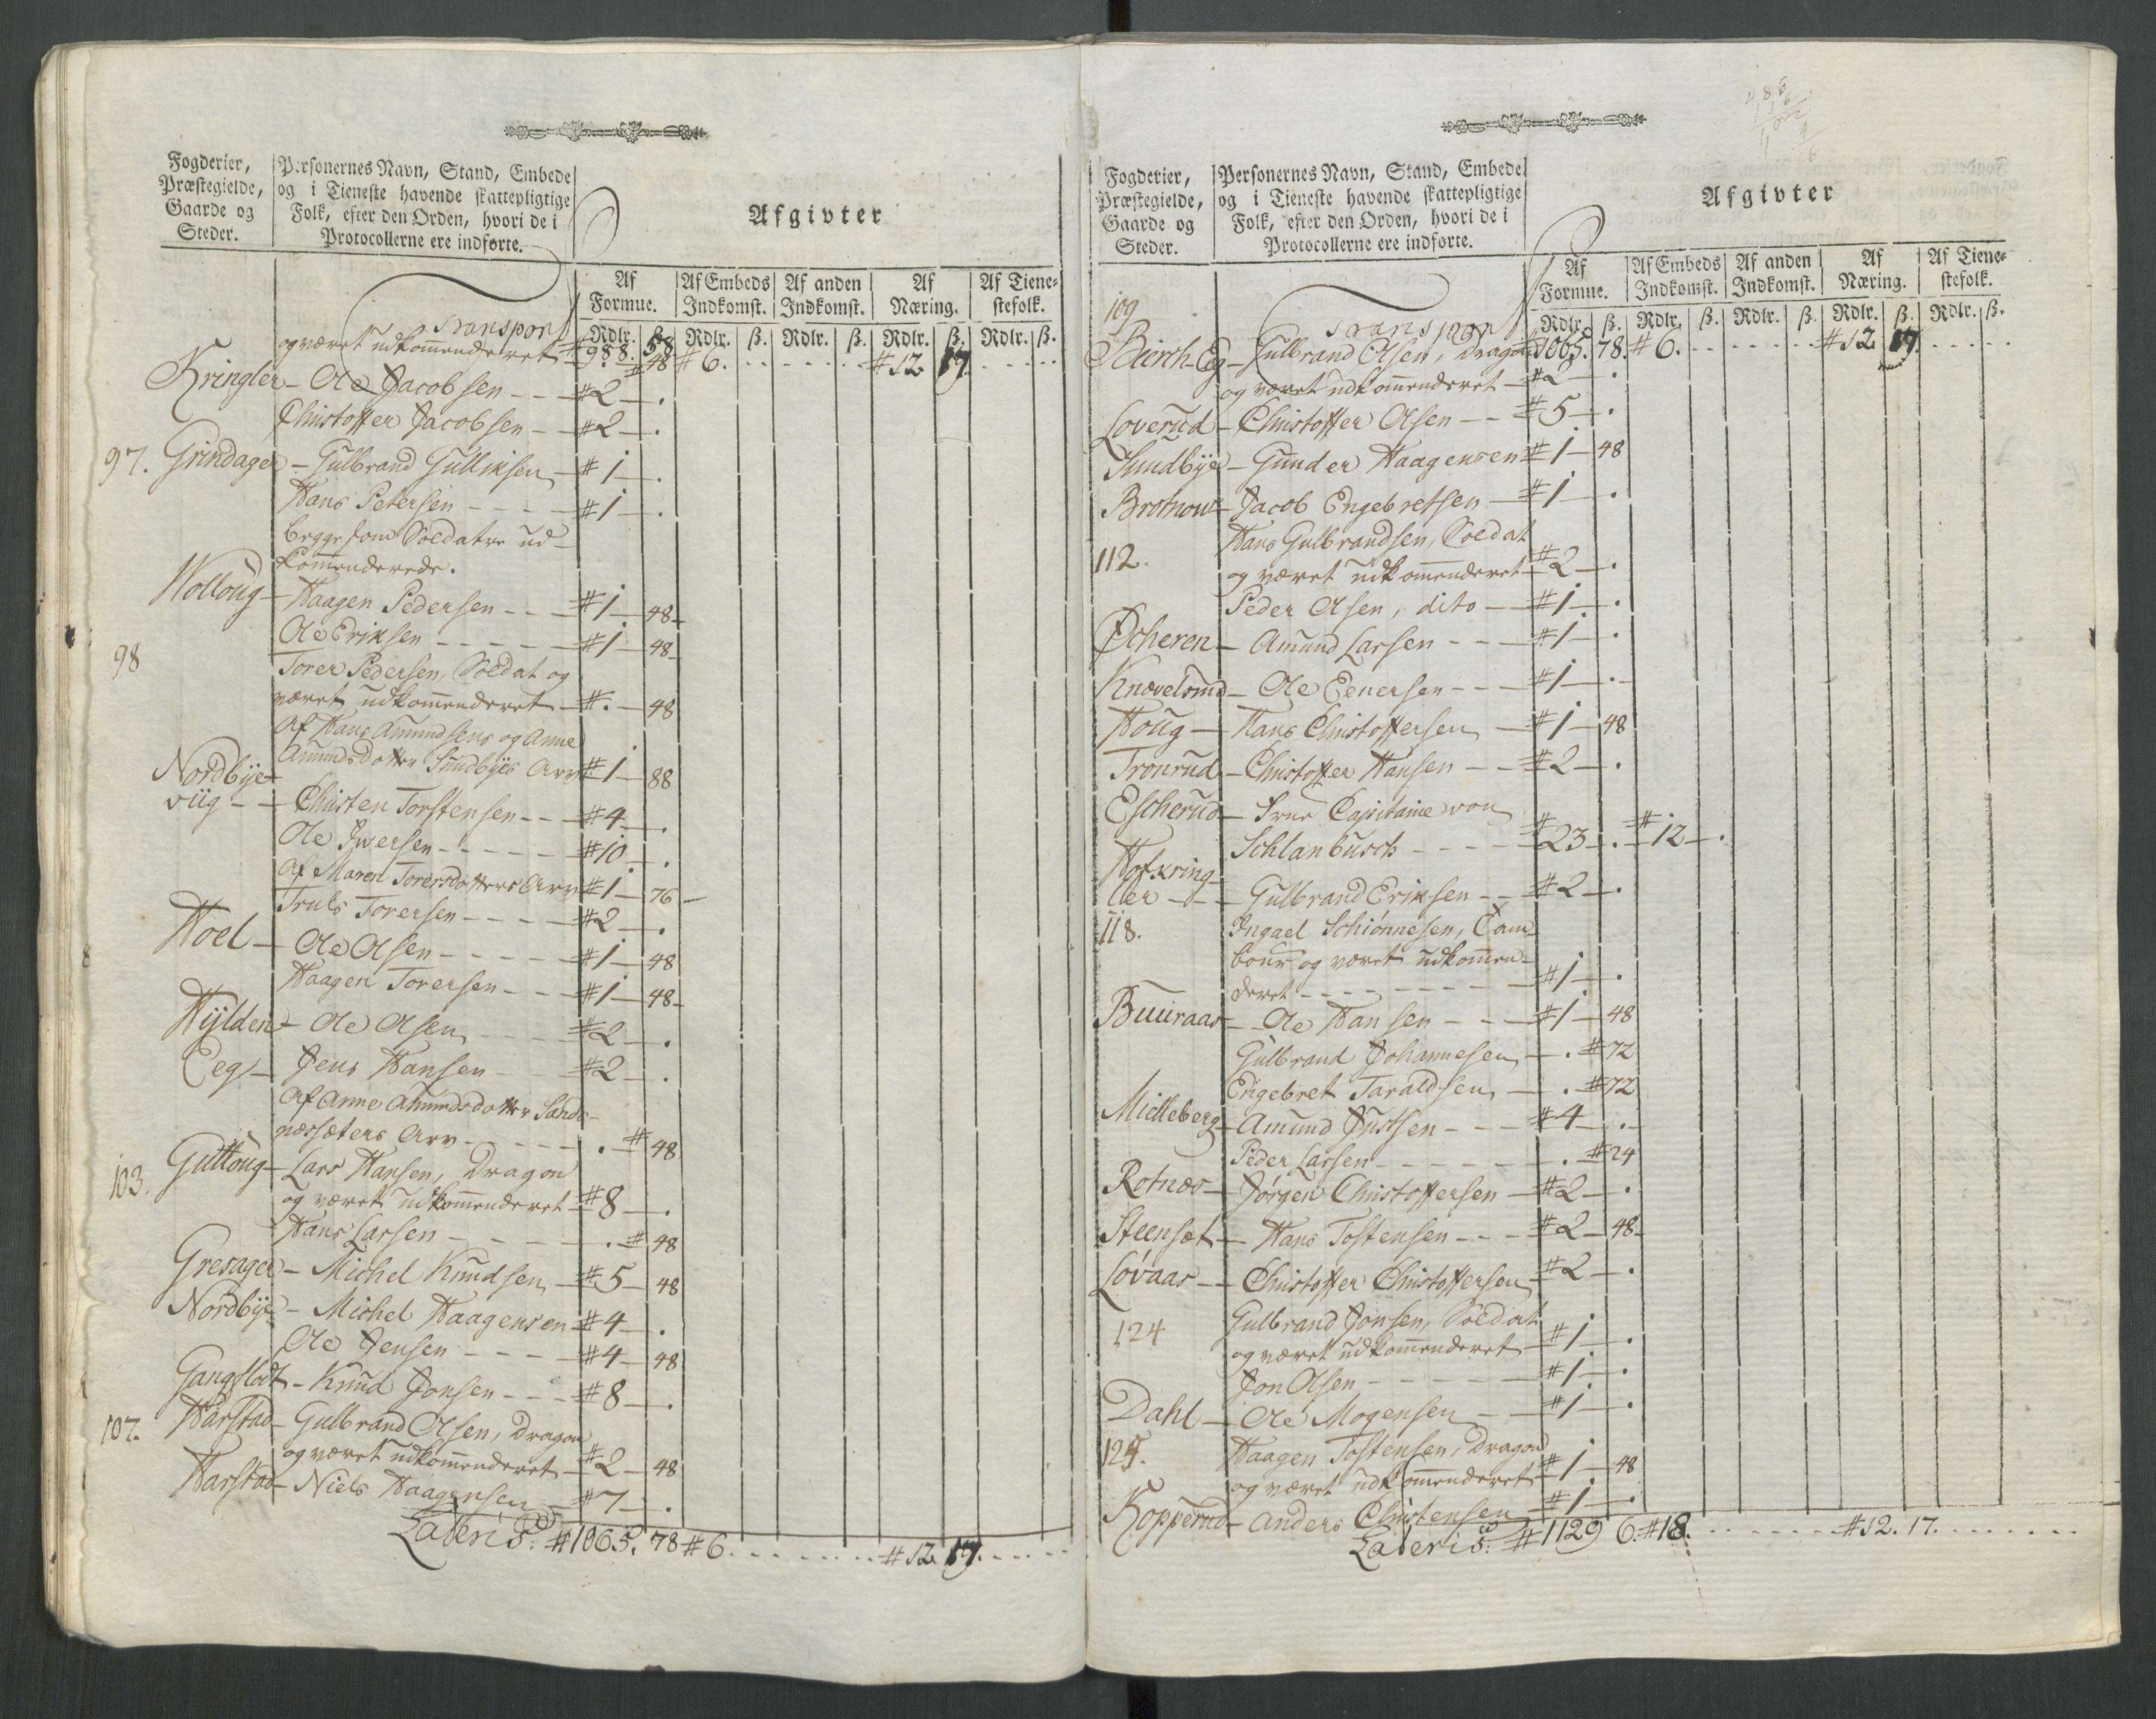 Fogderier, Præstegielde, Gaarde og Steder.
Personernes Navn, Stand, Embede og i Tieneste havende skattepligtige Folk, efter den Orden, hvori de i Protocollerne ere indførte.
Afgivter
Af Formue. Af Embeds Indkomst. Af anden Indkomst. Af Næring. Af Tienestefolk.
Rdlr. ß. Rdlr. ß. Rdlr. ß. Rdlr. ß. Rdlr. ß.
Transport # 988. 58 # 6. # 12. 17.
og været udkommenderet — # . — 48
Kringler — Ole Jacobsen — # 2 — .
Christoffer Jacobsen — # 2 — .
97. Grindager — Gulbrand Gulliksen — # 1 — .
Hans Petersen — # 1 — .
begge som Soldater ud-
kommenderede.
Holloug — Haagen Pedersen — # 1 — 48
98 Ole Eriksen — # 1 — 48
Torer Pedersen, Soldat og
været udkommenderet — # . — 48
Af Hans Amundsens og Anne
Amundsdotter Sundbyes Arv # 1 — 88
Nordbye-
viig — Christen Torstensen — # 4 — .
Ole Iversen — # 10 — .
Af Maren Torersdotters Arv # 1 — 76
Truls Torersen — # 2 — .
Hoel — Ole Olsen — # 1 — 48
Haagen Torersen — # 1 — 48
Hylden — Ole Olsen — # 2 — .
Eeg — Jens Hansen — # 2 — .
Af Anne Amundsdotter Sande-
næssæters Arv — . # 48
103. Guttoug — Lars Hansen, Dragon
og været udkommenderet # 8 — .
Hans Larsen — . # 48
Gresager — Michel Knudsen — # 5 — 48
Nordbye — Michel Haagensen # 4 — .
Ole Jensen — # 4 — 48
Gangflodt — Knud Jonsen — # 8 — .
107. Harstad — Gulbrand Olsen, Dragon
og været udkommenderet — # 2 — 48
Harstad — Niels Haagensen — # 7 — .
Lateris # 1065. 78 # 6. # 12. 17.
Fogderier, Præstegielde, Gaarde og Steder.
Personernes Navn, Stand, Embede og i Tieneste havende skattepligtige Folk, efter den Orden, hvori de i Protocollerne ere indførte.
Afgivter
Af Formue. Af Embeds Indkomst. Af anden Indkomst. Af Næring. Af Tienestefolk.
Rdlr. ß. Rdlr. ß. Rdlr. ß. Rdlr. ß. Rdlr. ß.
109 Transport # 1065. 78. # 6. # 12 17.
Bierch-Eeg — Gulbrand Olsen, Dragon
og været udkommenderet — # 2 — .
Loverud — Christoffer Olsen — # 5 — .
Sundbye — Gunder Haagensen # 1 — 48
Brotnow — Jacob Engebretsen — # 1 — .
112. Hans Gulbrandsen, Soldat
og været udkommenderet # 2 — .
Peder Olsen, dito — # 1 — .
Øcheren — Amund Larsen — # 1 — .
Knævelsrud — Ole Eenersen — # 1 — .
Houg — Hans Christoffersen — # 1 — 48
Tronrud — Christoffer Hansen — # 2 — .
Escherud — Frue Capitaine von
Schlanbusch — # 23 — . # 12 — .
Hofkring-
ler — Gulbrand Eriksen — # 2 — .
118. Ingael Schiønnesen, Tam-
bour og været udkommen-
deret — # 1 — .
Buuraas — Ole Hansen — # 1 — 48
Gulbrand Johannesen — . # 72
Engebret Taraldsen — . # 72
Midleberg — Amund Justsen — # 4 — .
Peder Larsen — . # 24
Rotnæs — Jørgen Christoffersen — # 2 — .
Steenset — Hans Tostensen — # 2 — 48
Løvaas — Christoffer Christoffersen # 2 — .
124 Gulbrand Jonsen, Soldat
og været udkommenderet — # 1 — .
Jon Olsen — # 1 — .
Dahl — Ole Mogensen — # 1 — .
125. Haagen Tostensen, Dragon
og været udkommenderet # 1 — 48
Kopperud — Anders Christensen # 1 — .
Lateris: # 1129 6. # 18. # 12. 17.